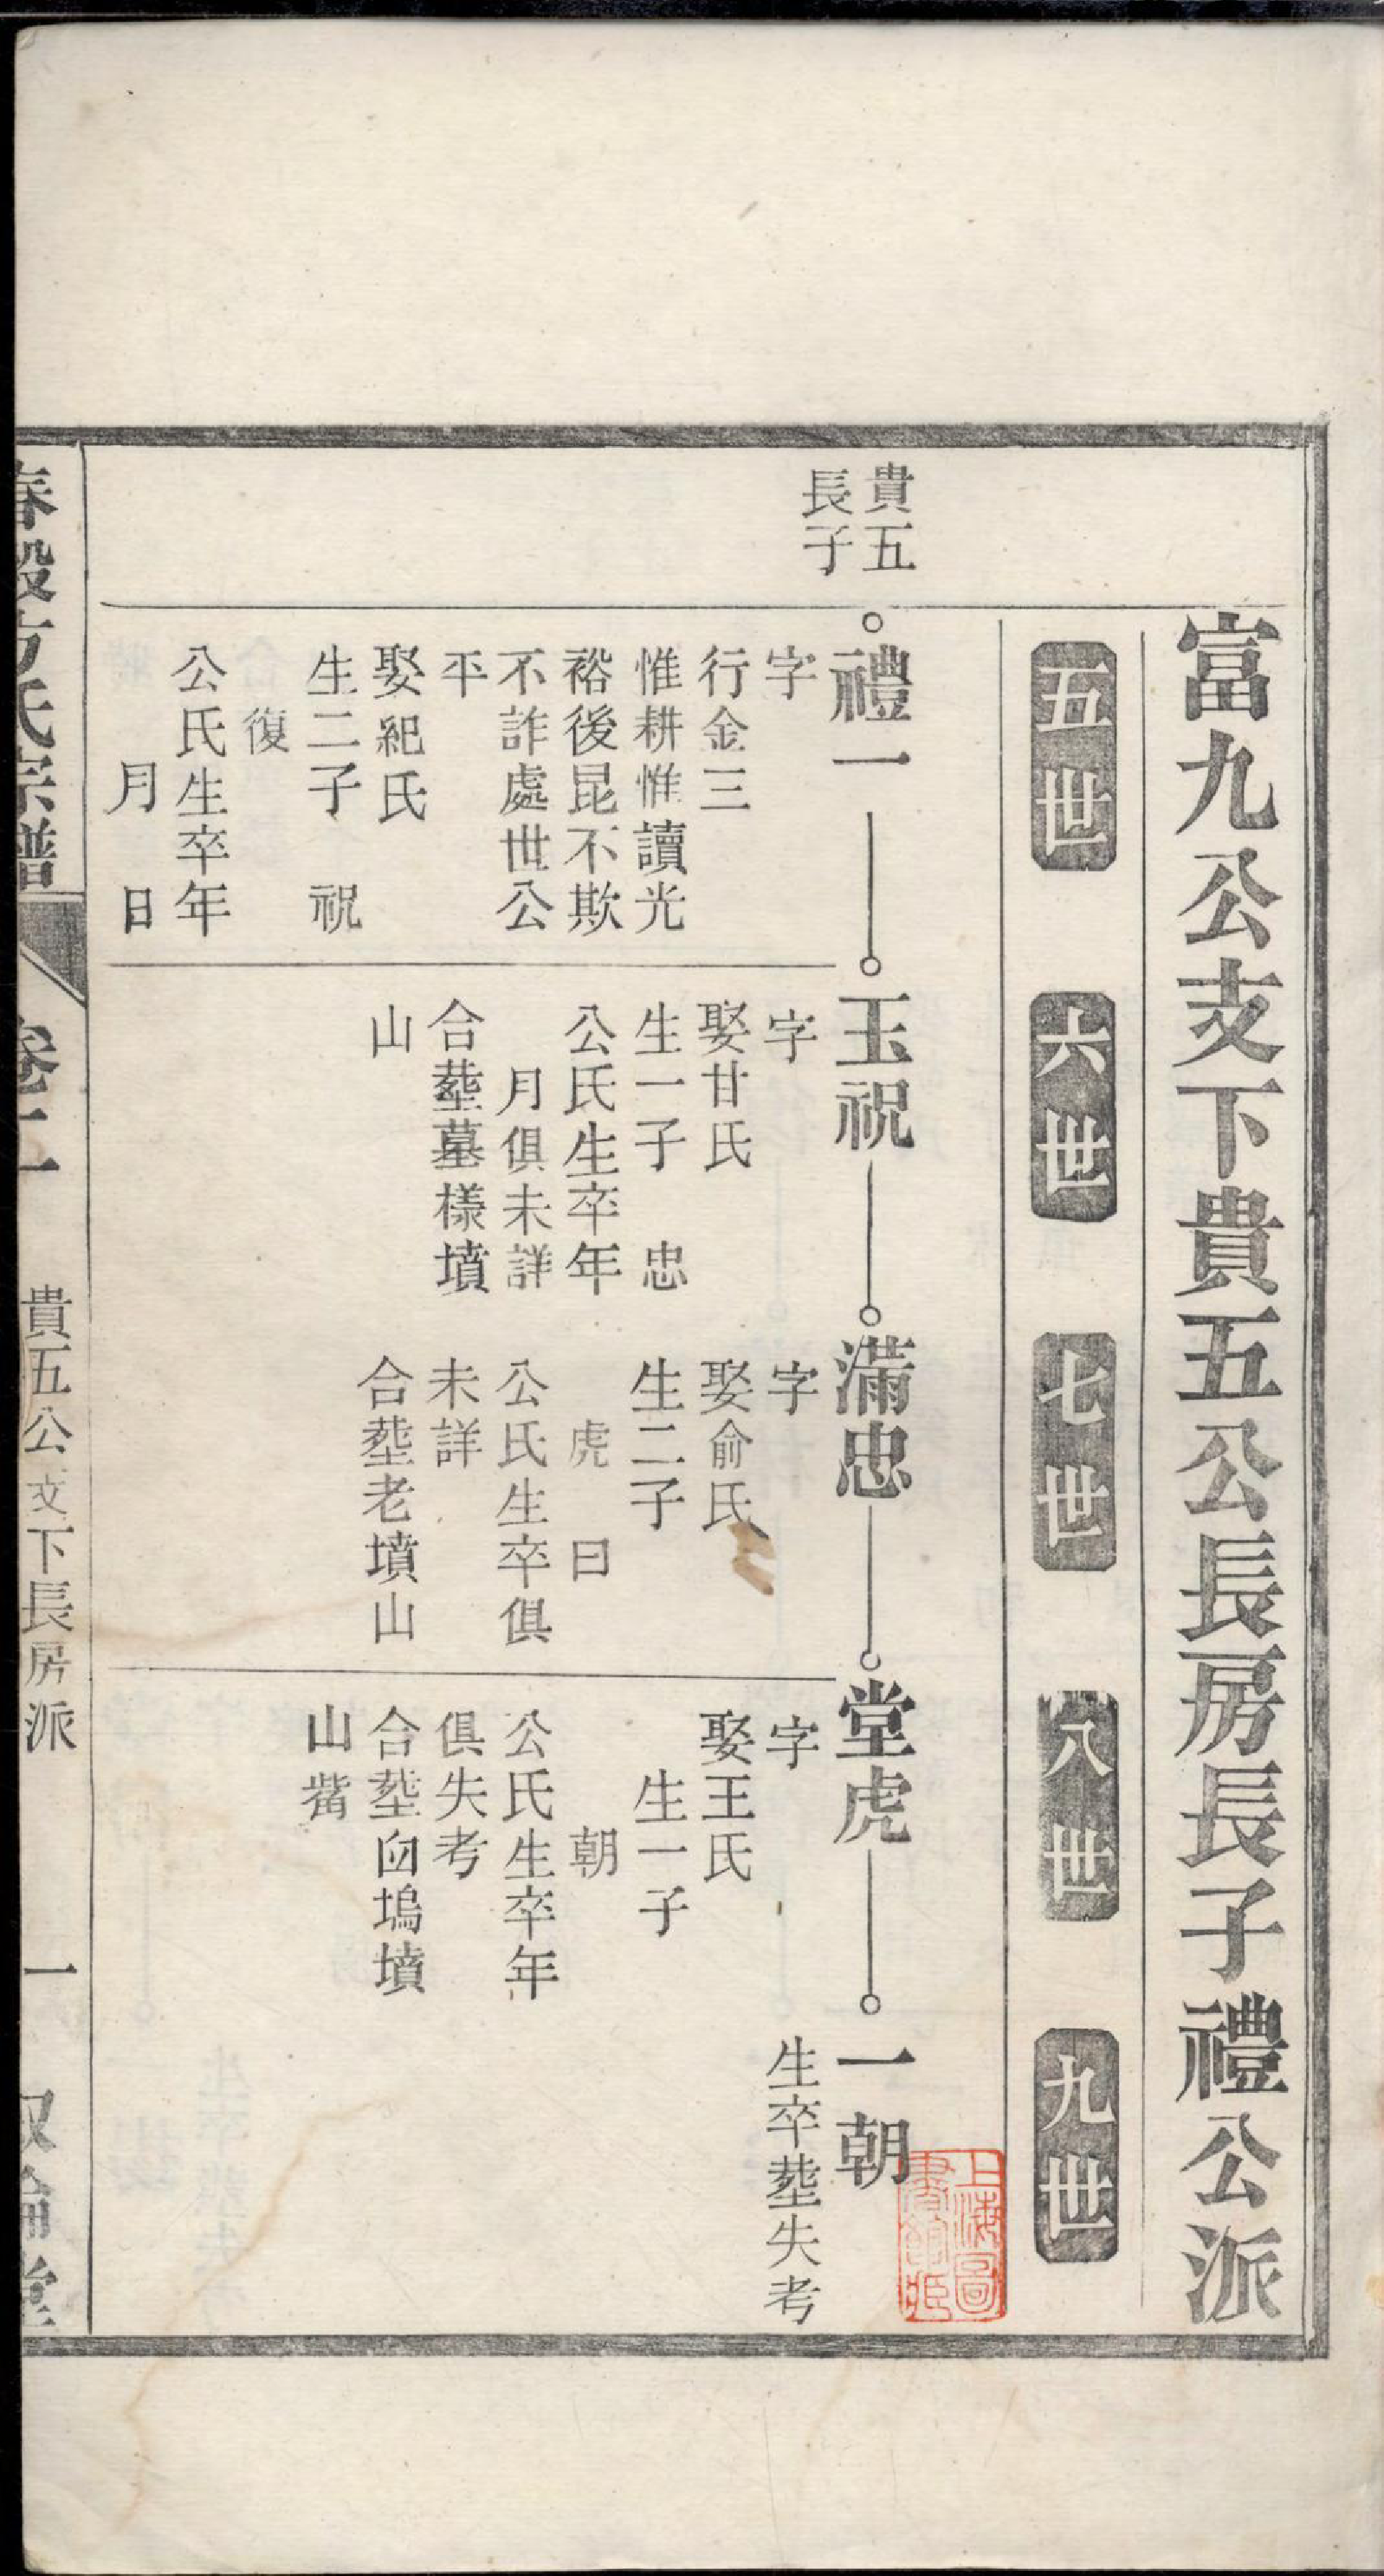 富九公支下貴五公長房長子禮公派
五世
六世
七世
八世
九世
貴五
長子
禮一
字
行金三
惟耕惟讀光
裕後昆不欺
不詐處世公
平
娶紀氏
生二子 祝
復
公氏生卒年
月 日
玉祝
字
娶甘氏
生一子 忠
公氏生卒年
月俱未詳
合塟墓樣墳
山
滿忠
字
娶俞氏
生二子
虎 曰
公氏生卒俱
未詳
合塟老墳山
堂虎
字
娶王氏
生一子
朝
公氏生卒年
俱失考
合塟囪塢墳
山觜
一朝
生卒塟失考
上海圖
書館藏
春穀方氏宗譜
卷二
貴五公支下長房派
一
敘倫堂